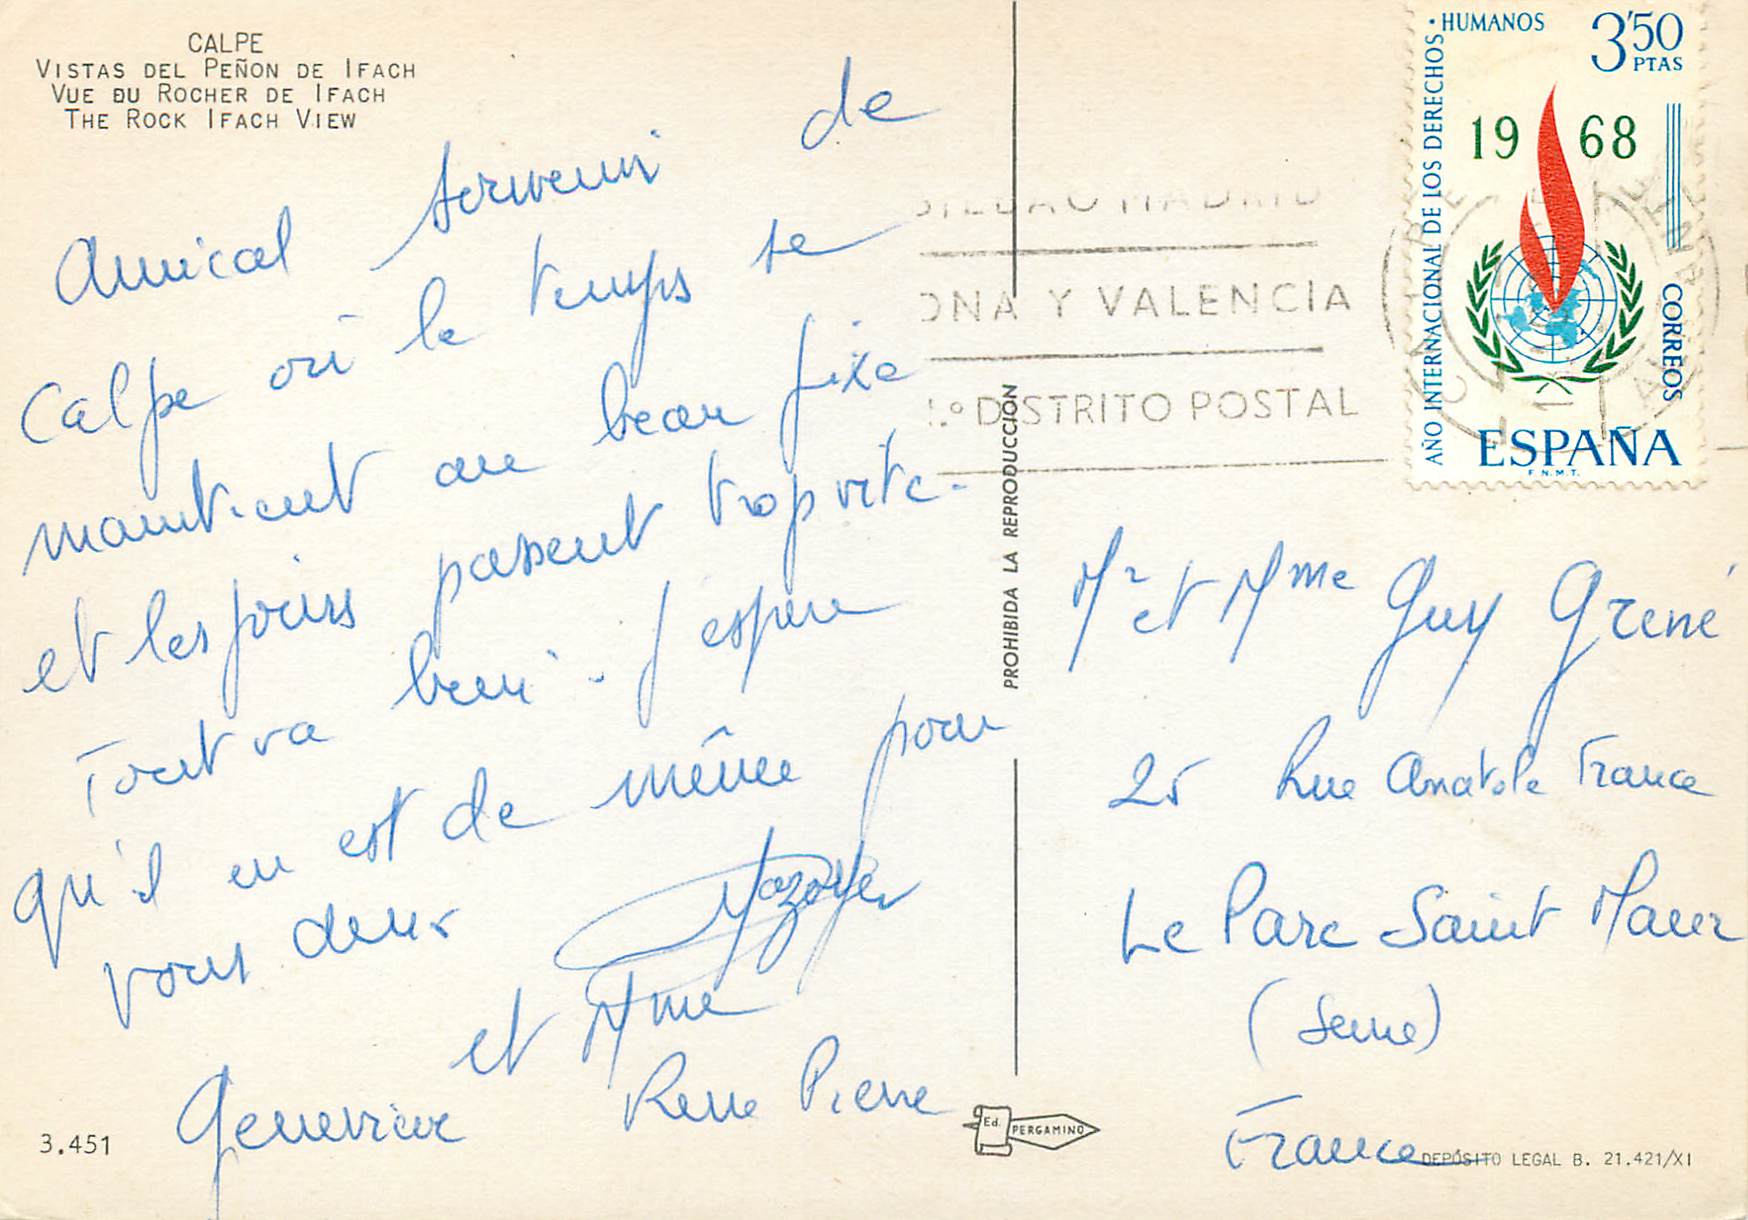 CALPE
VISTAS DEL PEÑON DE IFACH
VUE DU ROCHER DE IFACH
THE ROCK IFACH VIEW
Amical souvenir de
Calpe où le temps se
maintient au beau fixe
et les jours passent trop vite.
Tout va bien. J'espère
qu'il en est de même pour
vous deux
Mazoyer
et Mme
Geneviève René Pierre
3.451
Ed. PERGAMINO
PROHIBIDA LA REPRODUCCIÓN
BILBAO MADRID
ONA Y VALENCIA
1.º DISTRITO POSTAL
AÑO INTERNACIONAL DE LOS DERECHOS • HUMANOS
3'50
PTAS
1968
CORREOS
ESPAÑA
F.N.M.T.
Mr et Mme Guy Grené
25 Rue Anatole France
Le Parc Saint Maur
(Seine)
France
DEPÓSITO LEGAL B. 21.421/XI